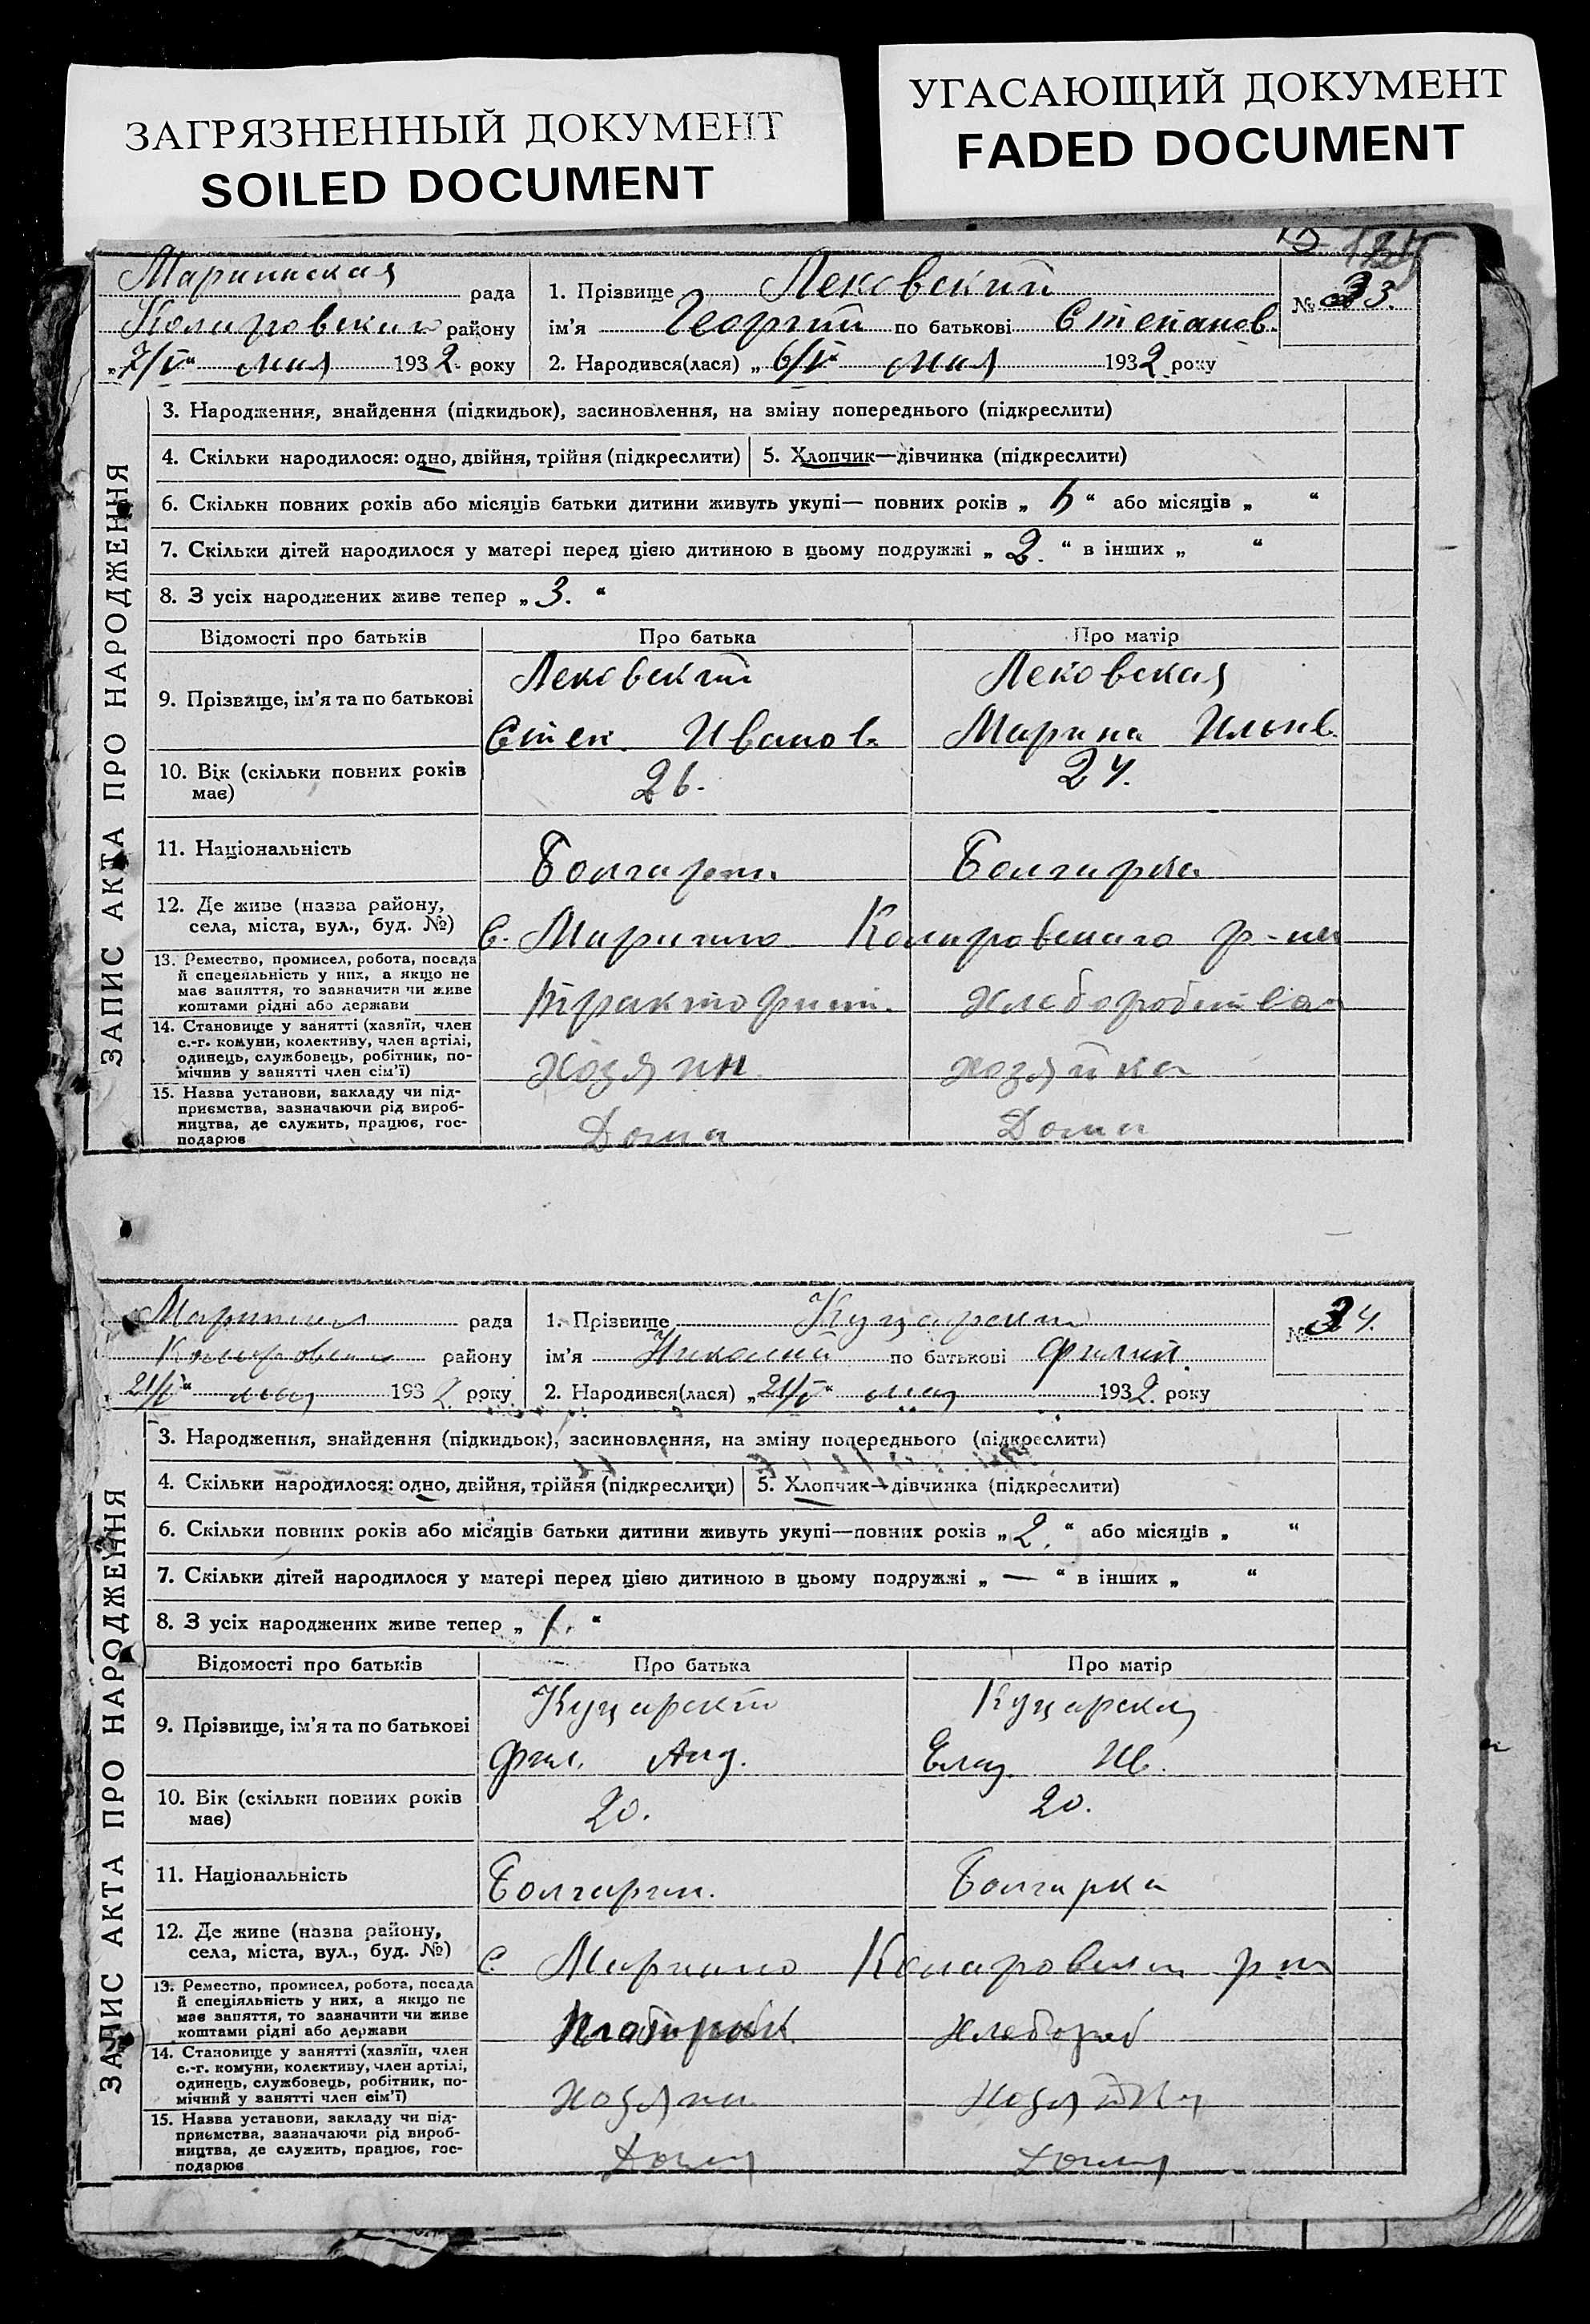 ЗАГРЯЗНЕННЫЙ ДОКУМЕНТ
SOILED DOCUMENT
УГАСАЮЩИЙ ДОКУМЕНТ
FADED DOCUMENT
ЗАПИС АКТА ПРО НАРОДЖЕННЯ
Мариинская рада
району
„7/V“ мая 1932 року
1. Прізвище Лековский
ім'я Георгий по батькові Степанов.
2. Народився(лася) „6/V“ мая 1932 року
№ 33.
3. Народження, знайдення (підкидьок), засиновлення, на зміну попереднього (підкреслити)
4. Скільки народилося: одно, двійня, трійня (підкреслити) 5. Хлопчик—дівчинка (підкреслити)
6. Скільки повних років або місяців батьки дитини живуть укупі— повних років „ “ або місяців „ “
7. Скільки дітей народилося у матері перед цією дитиною в цьому подружжі „ 2. “ в інших „ “
8. З усіх народжених живе тепер „ 3. “
Відомості про батьків Про батька Про матір
9. Прізвище, ім'я та по батькові
Лековский
Степ. Иванов.
Лековская
Марина Ильив.
10. Вік (скільки повних років має)
26.
24.
11. Національність
Болгарин.
Болгарка
12. Де живе (назва району, села, міста, вул., буд. №)
с. Марьино Коларовского р-на
13. Ремество, промисел, робота, посада
й спецеяльність у них, а якщо не
має заняття, то зазначити чи живе
коштами рідні або держави
Тракторист.
14. Становище у занятті (хазяїн, член
с.-г. комуни, колективу, член артілі,
одинець, службовець, робітник, по-
мічнив у занятті член сім'ї)
Хозяин
хозяйка
15. Назва установи, закладу чи під-
приємства, зазначаючи рід вироб-
ництва, де служить, працює, гос-
подарює
Дома
Дома
ЗАПИС АКТА ПРО НАРОДЖЕННЯ
рада
району
„21/V“ мая 1932 року
1. Прізвище Куцарский
ім'я Николай по батькові Филип.
2. Народився(лася) „21/V“ мая 1932. року
№ 34.
3. Народження, знайдення (підкидьок), засиновлення, на зміну попереднього (підкреслити)
4. Скільки народилося: одно, двійня, трійня (підкреслити) 5. Хлопчик—дівчинка (підкреслити)
6. Скільки повних років або місяців батьки дитини живуть укупі—повних років „ 2. “ або місяців „ “
7. Скільки дітей народилося у матері перед цією дитиною в цьому подружжі „ — “ в інших „ “
8. З усіх народжених живе тепер „ 1. “
Відомості про батьків Про батька Про матір
9. Прізвище, ім'я та по батькові
Куцарский
Фил. Анд.
Куцарская
Ив.
10. Вік (скільки повних років має)
20.
20.
11. Національність
Болгарин.
Болгарка
12. Де живе (назва району, села, міста, вул., буд. №)
с. Марьино Коларовского р-на
13. Ремество, промисел, робота, посада
й спеціяльність у них, а якщо не
має заняття, то зазначити чи живе
коштами рідні або держави
Хлебороб
14. Становище у занятті (хазяїн, член
с.-г. комуни, колективу, член артілі,
одинець, службовець, робітник, по-
мічний у занятті член сім'ї)
Хозяин
Хозяйка
15. Назва установи, закладу чи під-
приємства, зазначаючи рід вироб-
ництва, де служить, працює, гос-
подарює
Дома
Дома